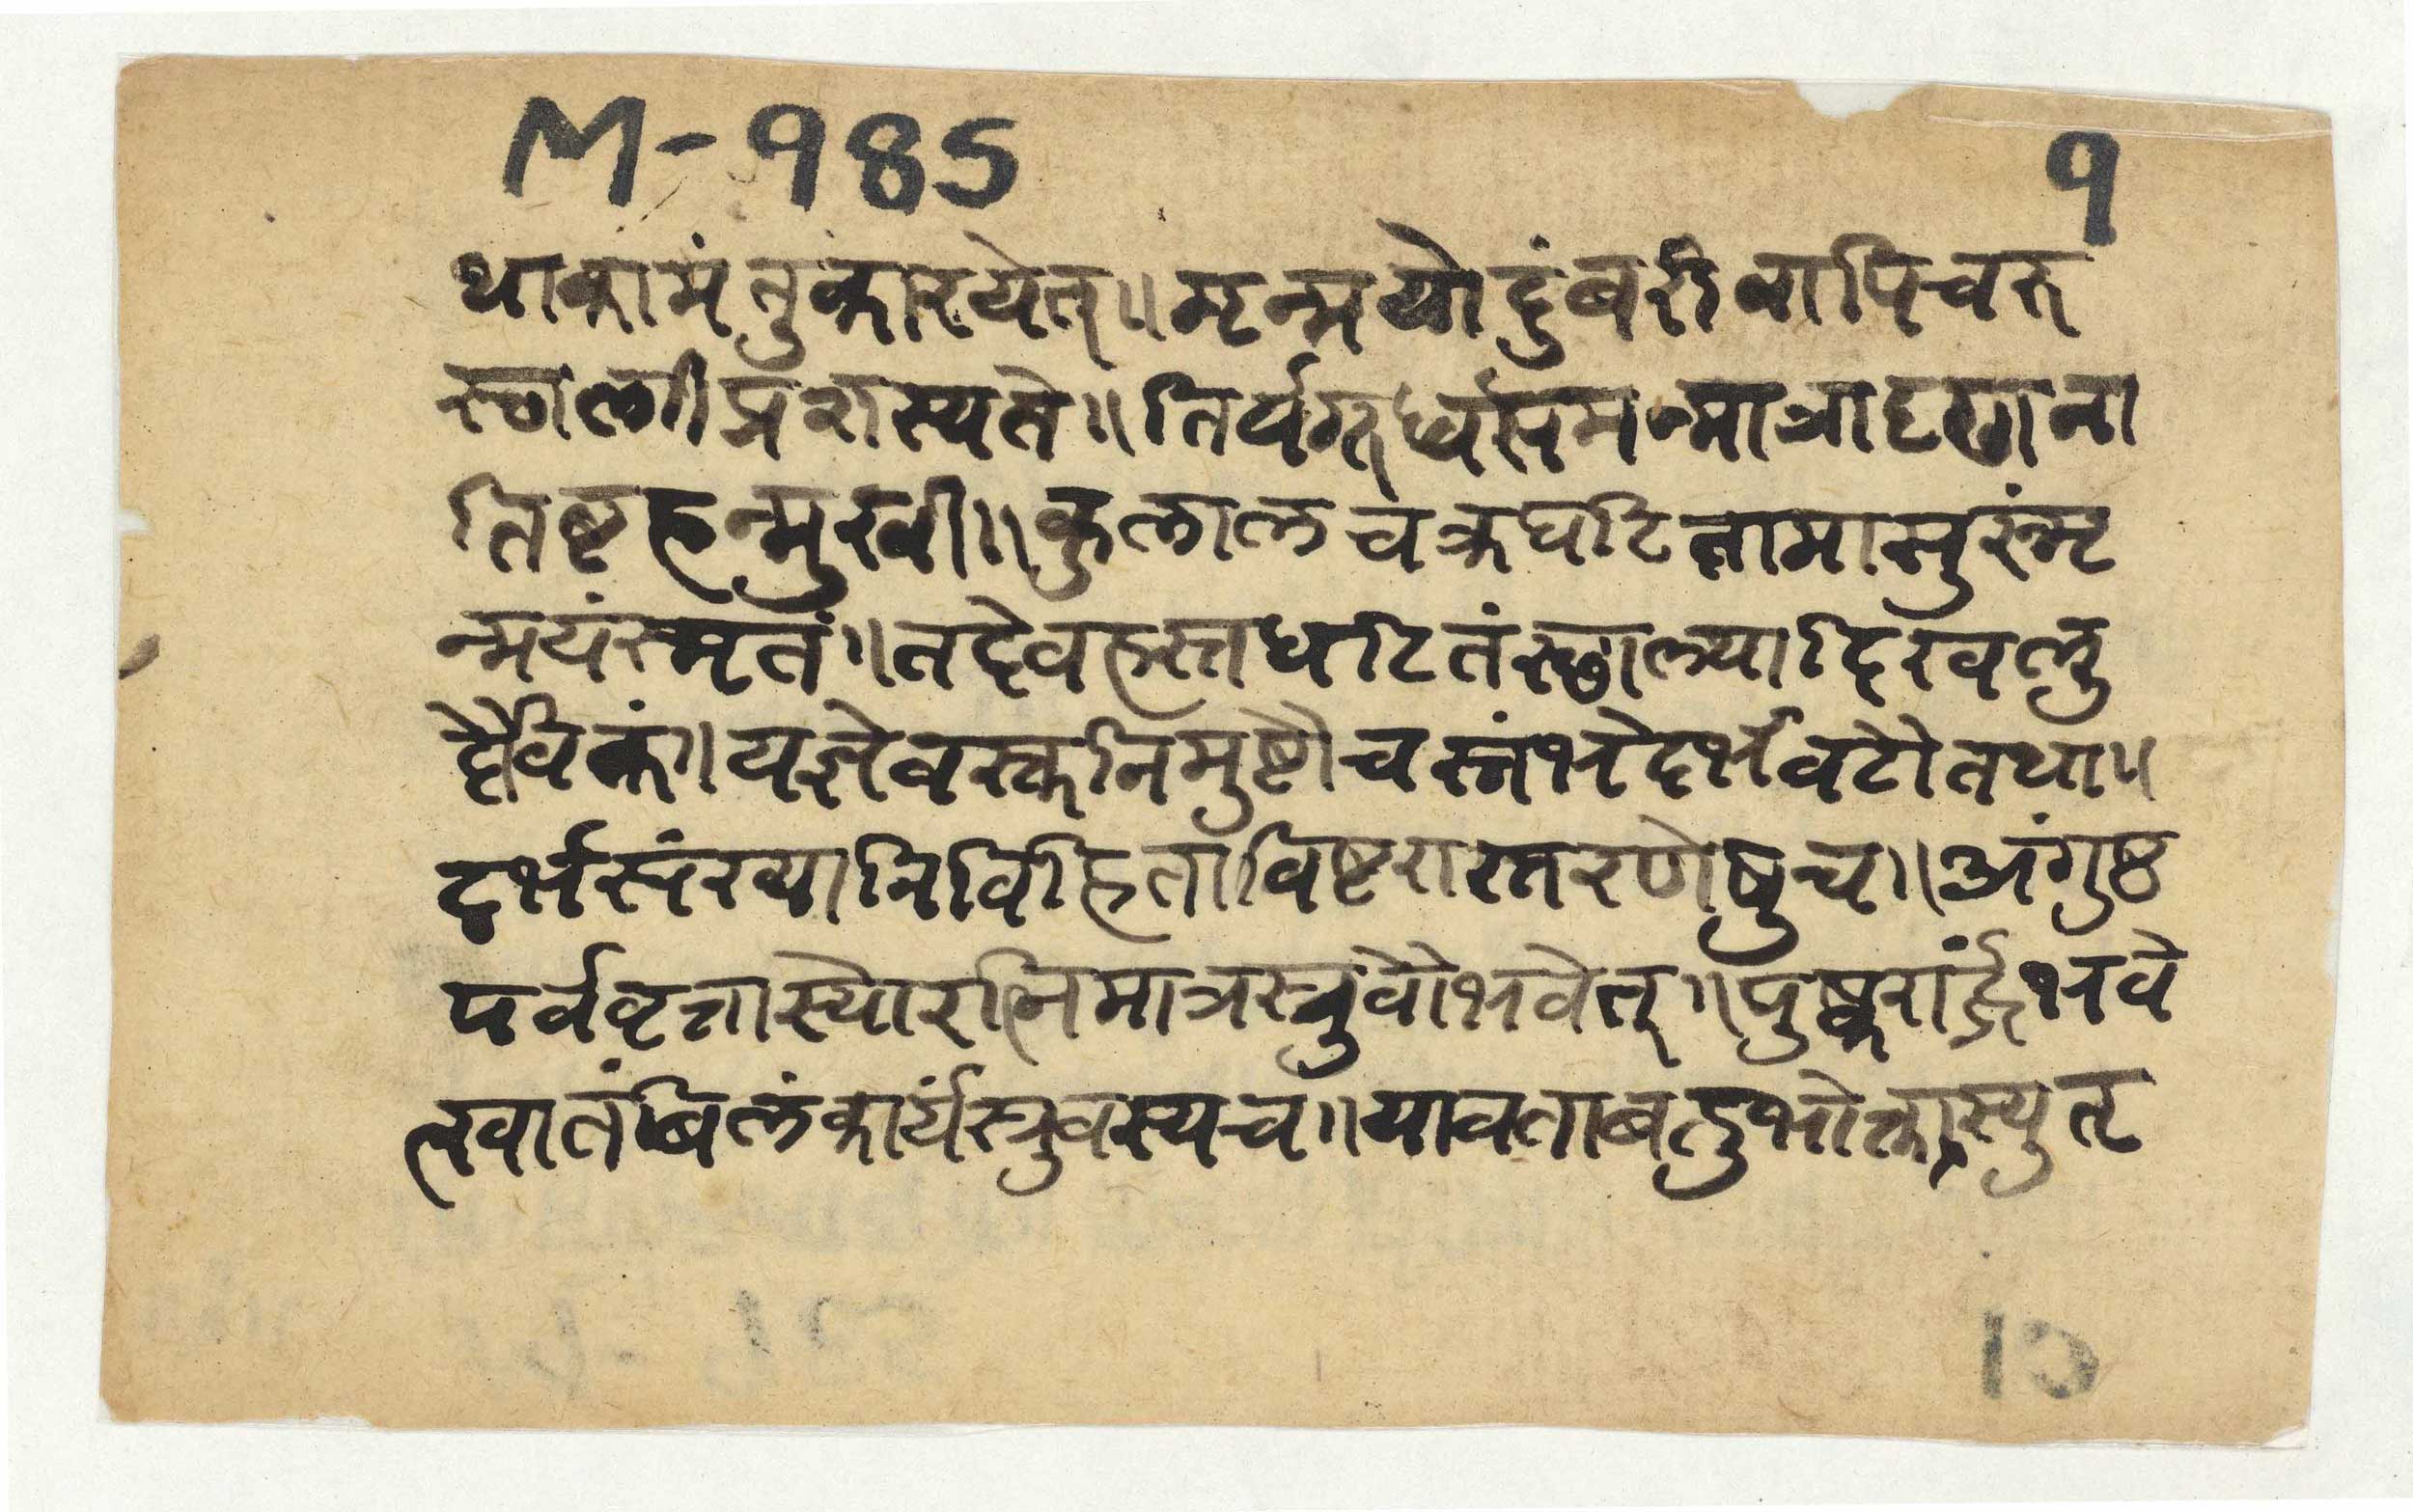 M-985
१
थाकामंतुकारयेत्॥मृन्मयोदुंबरीवापिचरु
स्छालीप्रशस्यते॥तिर्यगूर्ध्वसमन्मात्रादृढाना
तिष्टहन्मुखी॥कुलालचक्रघटितामासुरंमृ
न्मयंस्मृतं॥तद्देवहस्तघटितंस्छाल्यादिखलु
द्दैविकं॥यज्ञेवस्तुनिमुष्टौचस्तंभेदर्भवटौतथा॥
दर्भसंख्यानिविहिताविष्टरास्तरणेषुच॥अंगुष्ठ
पर्ववृत्तास्योरत्निमात्रस्त्रुवोभवेत्॥पुष्करार्द्धंभवे
त्खातंबिलंकार्यंस्त्रुवस्यच॥यावताबहुभोक्तास्युतृ